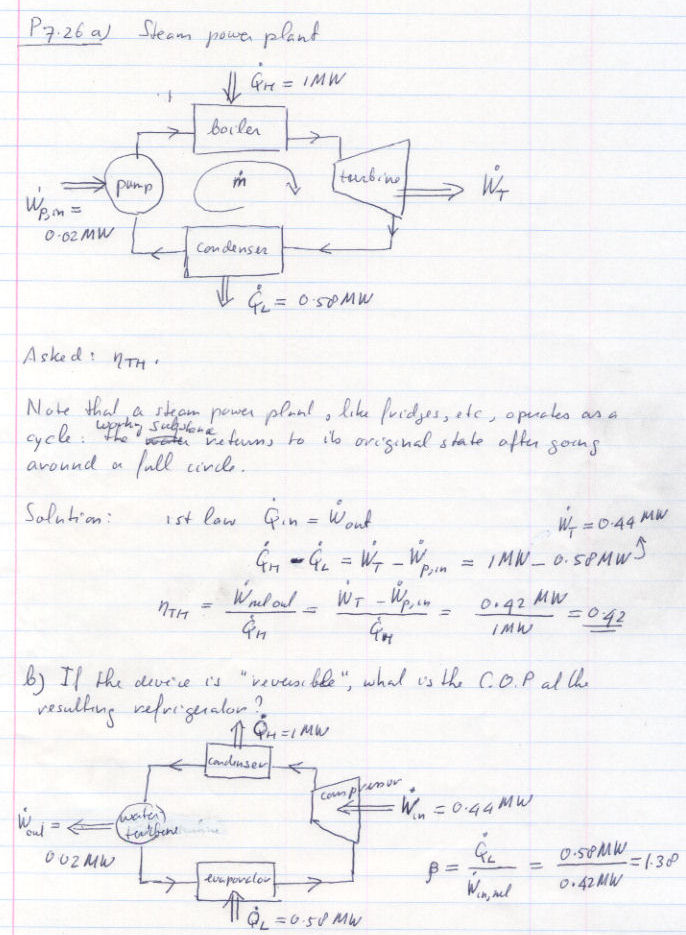 P7.26 a) Steam power plant
Q̇H = 1MW
boiler
pump
ṁ
turbine
ẆT
Ẇp,in =
0.02MW
condenser
Q̇L = 0.58MW
Asked: ηTH.
Note that a steam power plant, like fridges, etc, operates as a
cycle: the working substance returns to its original state after going
around a full circle.
Solution: 1st law Q̇in = Ẇout
ẆT = 0.44 MW
Q̇H - Q̇L = ẆT - Ẇp,in = 1MW - 0.58MW
ηTH = Ẇnet out / Q̇H = (ẆT - Ẇp,in) / Q̇H = 0.42 MW / 1MW = 0.42
b) If the device is "reversible", what is the C.O.P of the
resulting refrigerator?
Q̇H = 1MW
condenser
compressor
Ẇin = 0.44 MW
water turbine
Ẇout =
0.02 MW
evaporator
Q̇L = 0.58MW
β = Q̇L / Ẇin,net = 0.58MW / 0.42MW = 1.38